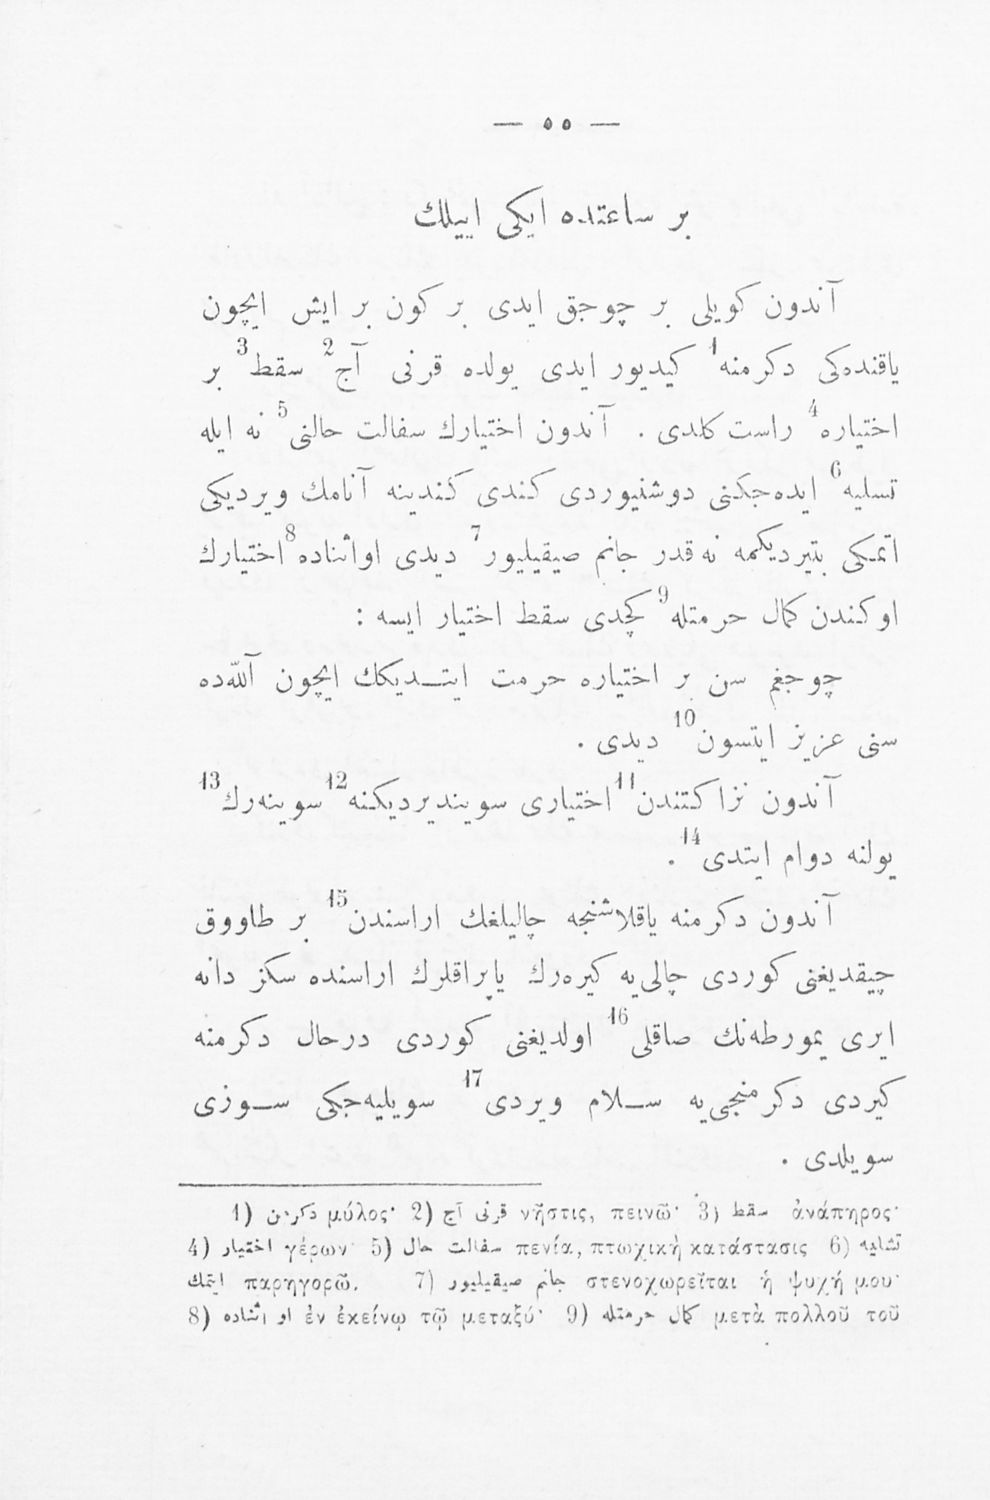 — ٥٥ —
بر ساعتده ایكی ایيلك
آندون كویلی بر چوجق ایدی بر كون بر ایش ایچون
یاقنده‌كی دكرمنه1 كیدیور ایدی یولده قرنی آج2 سقط3 بر
اختیاره4 راست كلدی . آندون اختیارك سفالت حالنی5 نه ایله
تسلیه6 ایده‌جكنی دوشنیوردی كندی كندینه آنامك ویردیكی
اتمكی بتیردیكمه نه قدر جانم صیقیلیور7 دیدی اواثناده8 اختیارك
اوكندن كمال حرمتله9 كچدی سقط اختیار ایسه :
چوجغم سن بر اختیاره حرمت ایتــدیكك ایچون آللّه‌ده
سنی عزیز ایتسون10 دیدی .
آندون نزاكتندن11 اختیاری سویندیردیكنه12 سوینه‌رك13
یولنه دوام ایتدی14.
آندون دكرمنه یاقلاشنجه چالیلغك اراسندن15 بر طاووق
چیقدیغنی كوردی چالی‌یه كیره‌رك یاپراقلرك اراسنده سكز دانه
ایری یمورطه‌نك صاقلی16 اولدیغنی كوردی درحال دكرمنه
كیردی دكرمنجی‌یه ســلام ویردی17 سویلیه‌جكی ســوزی
سویلدی .
1) دكرمن μύλος· 2) قرنی آج νῆστις, πεινῶ· 3) سقط ἀνάπηρος·
4) اختیار γέρων· 5) سفالت حال πενία, πτωχικὴ κατάστασις 6) تسلیه
ایتمك παρηγορῶ. 7) جانم صیقیلیور στενοχωρεῖται ἡ ψυχή μου·
8) او اثناده ἐν ἐκείνῳ τῷ μεταξύ· 9) كمال حرمتله μετὰ πολλοῦ τοῦ